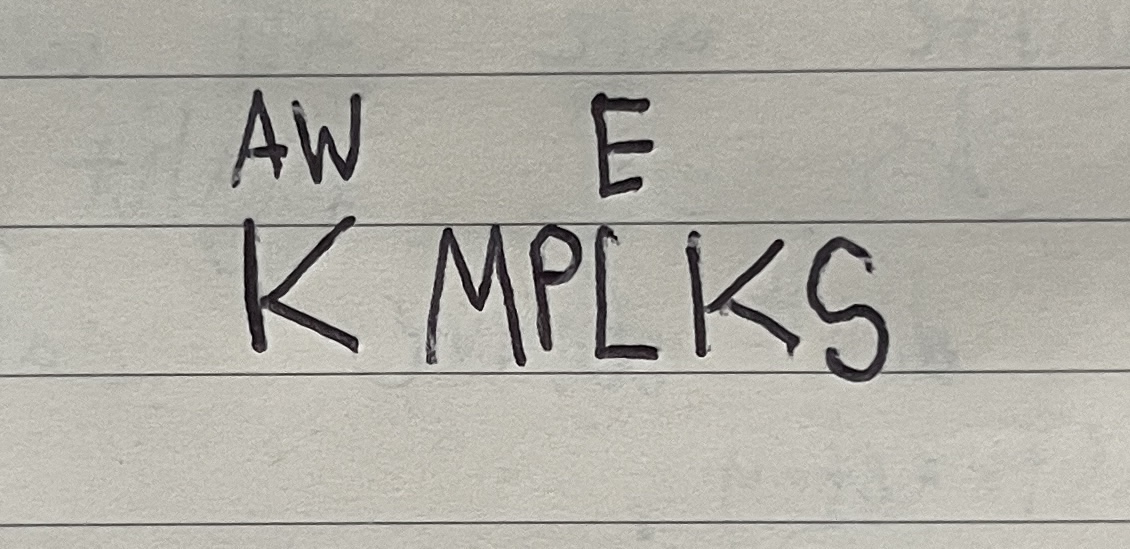 AW E
K MPLKS